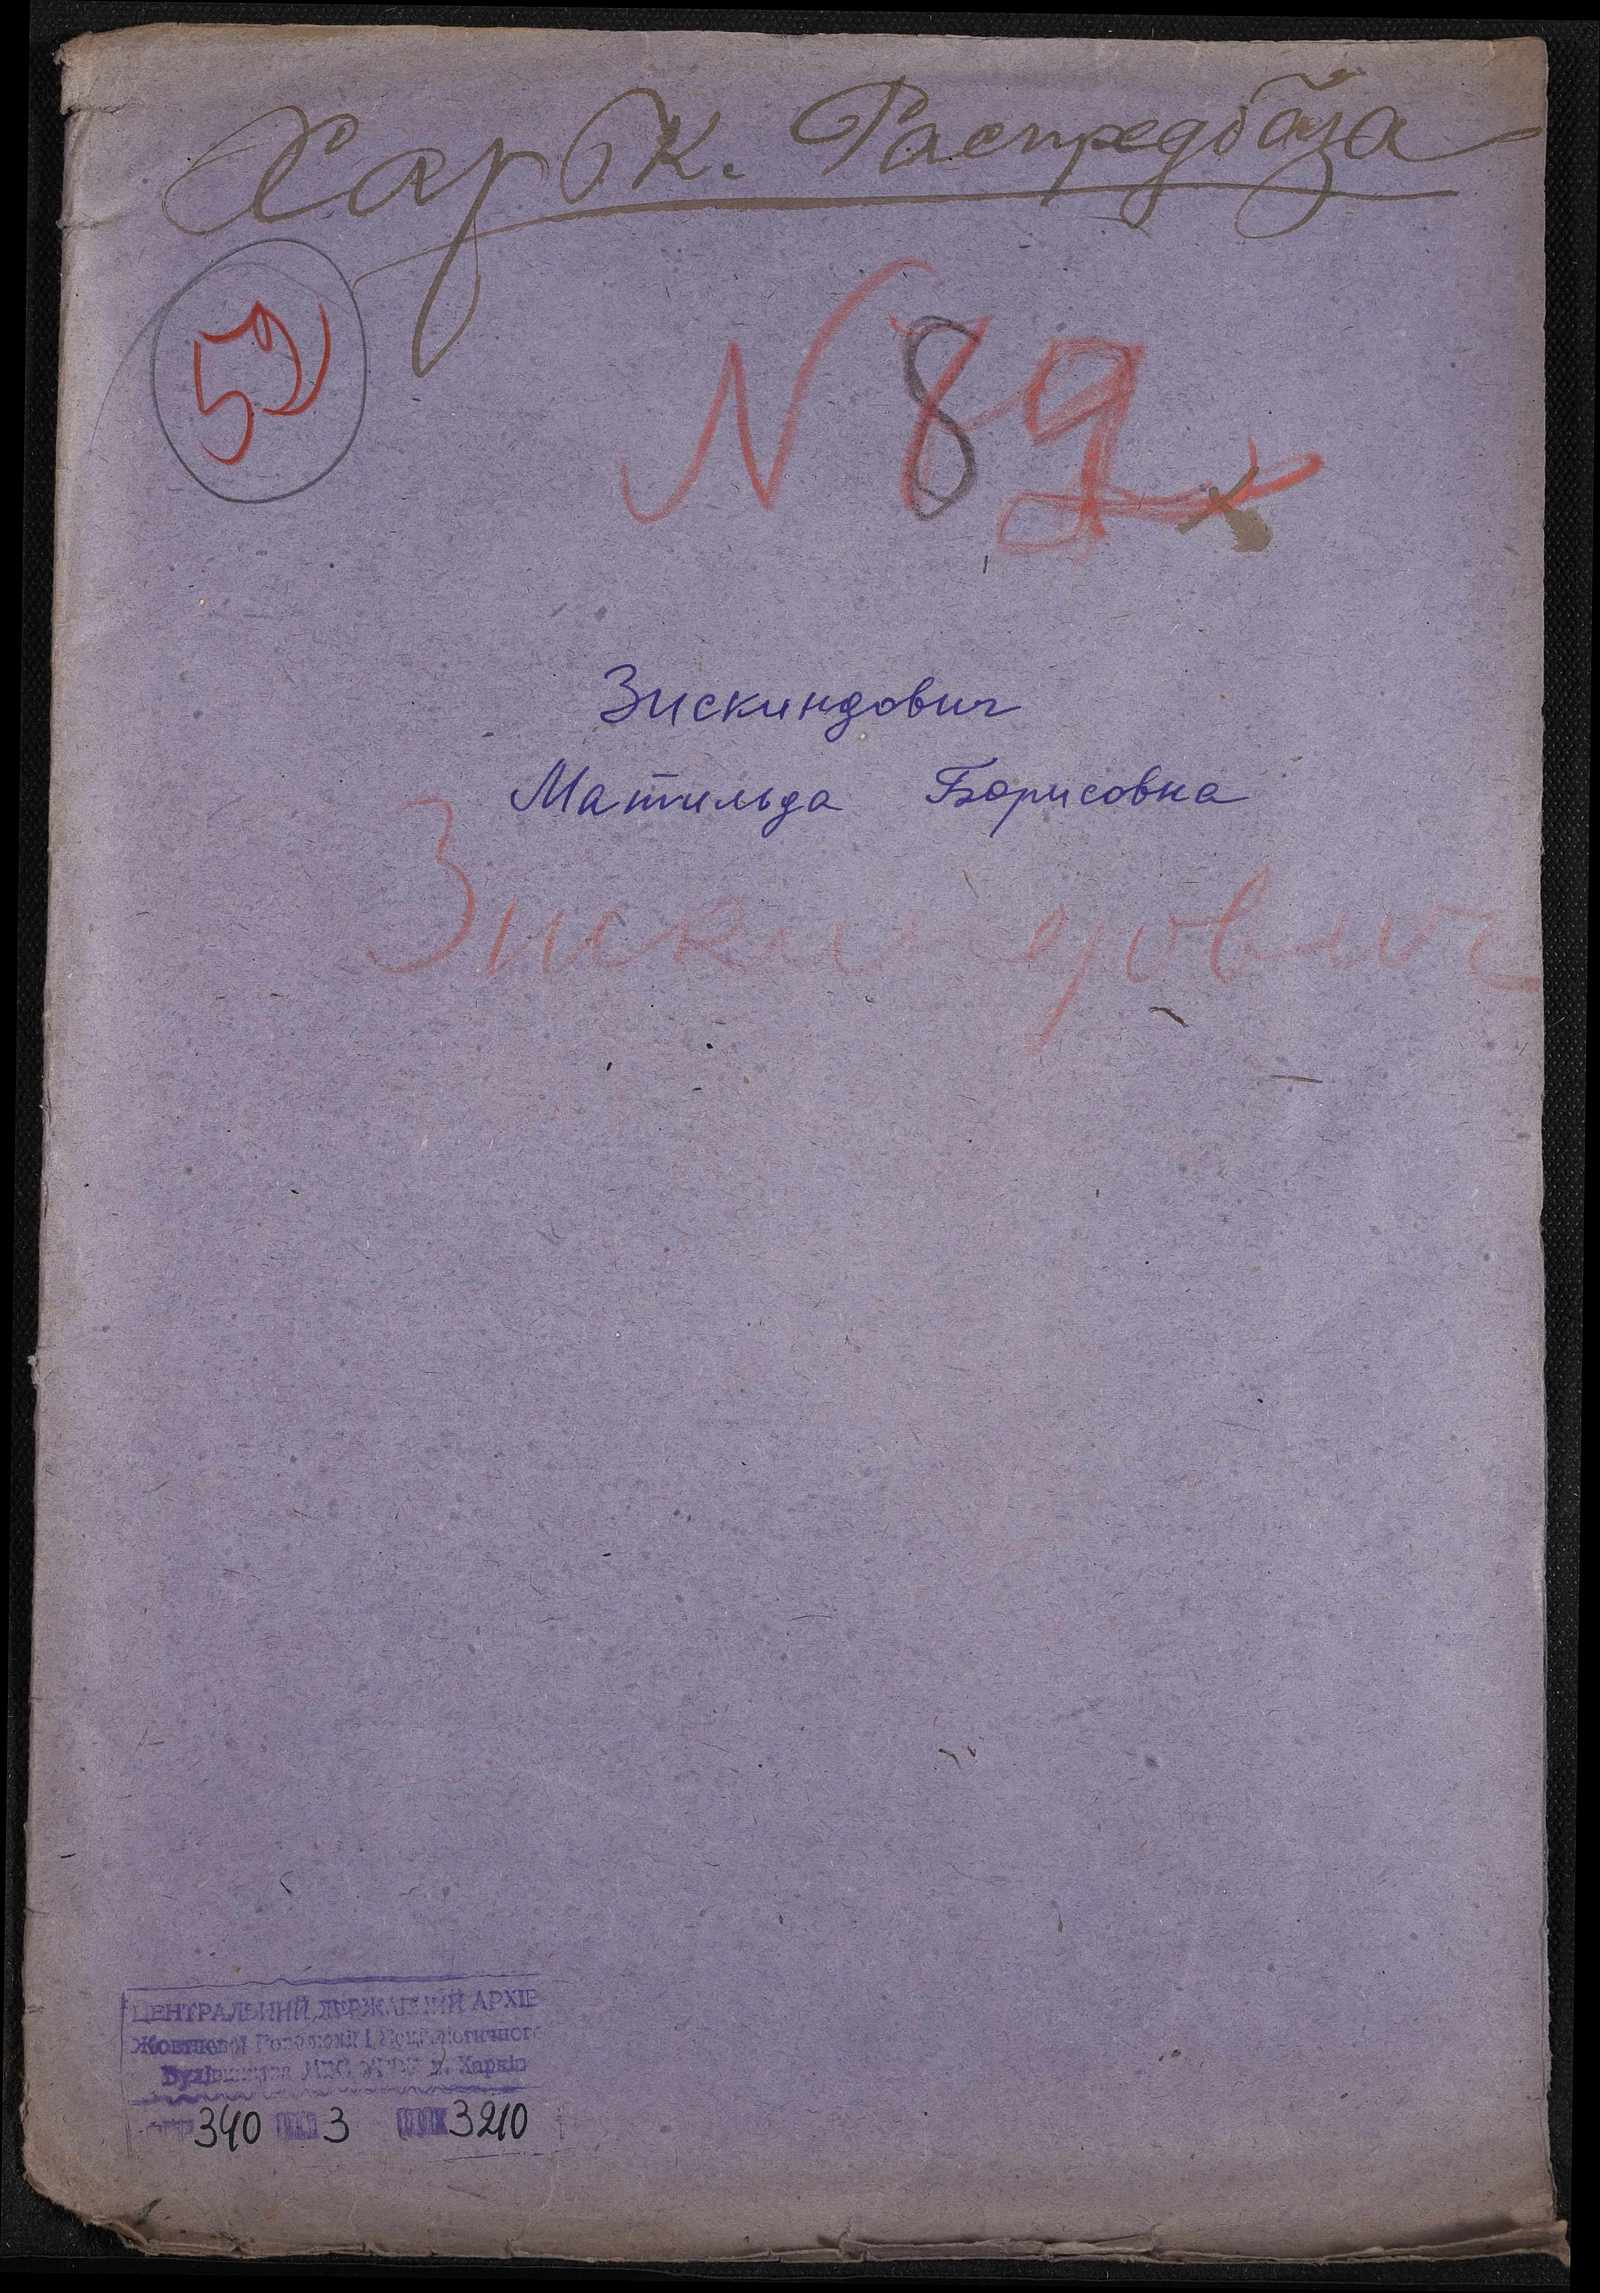 Харк. Распредбаза
59
N 89
Зискиндович
Матильда Борисовна
Зискиндович
ЦЕНТРАЛЬНИЙ ДЕРЖАВНИЙ АРХІВ
Жовтневої Революції і Соціалістичного
Будівництва УРСР м. Харків
340 3 3210